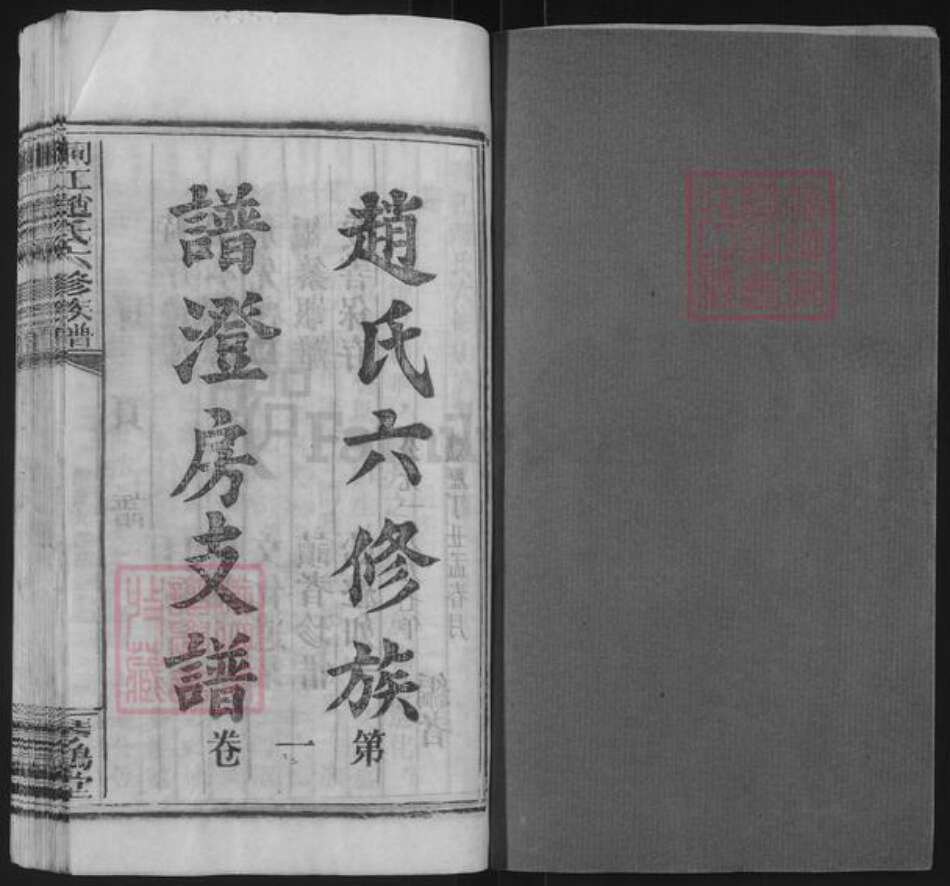 趙氏六修族
譜澄房支譜
第一卷
江趙氏六修族譜